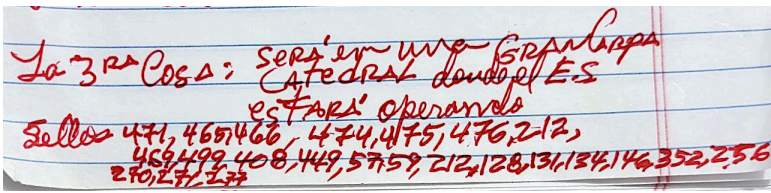 La 3RA Cosa: SERÁ en una GRAN CARPA
CATEDRAL donde el E.S
ESTARÁ operando
Sellos 471, 465, 466, 474, 475, 476, 212,
469, 499, 408, 449, 57, 59, 212, 128, 131, 134, 146, 352, 256
270, 271, 277